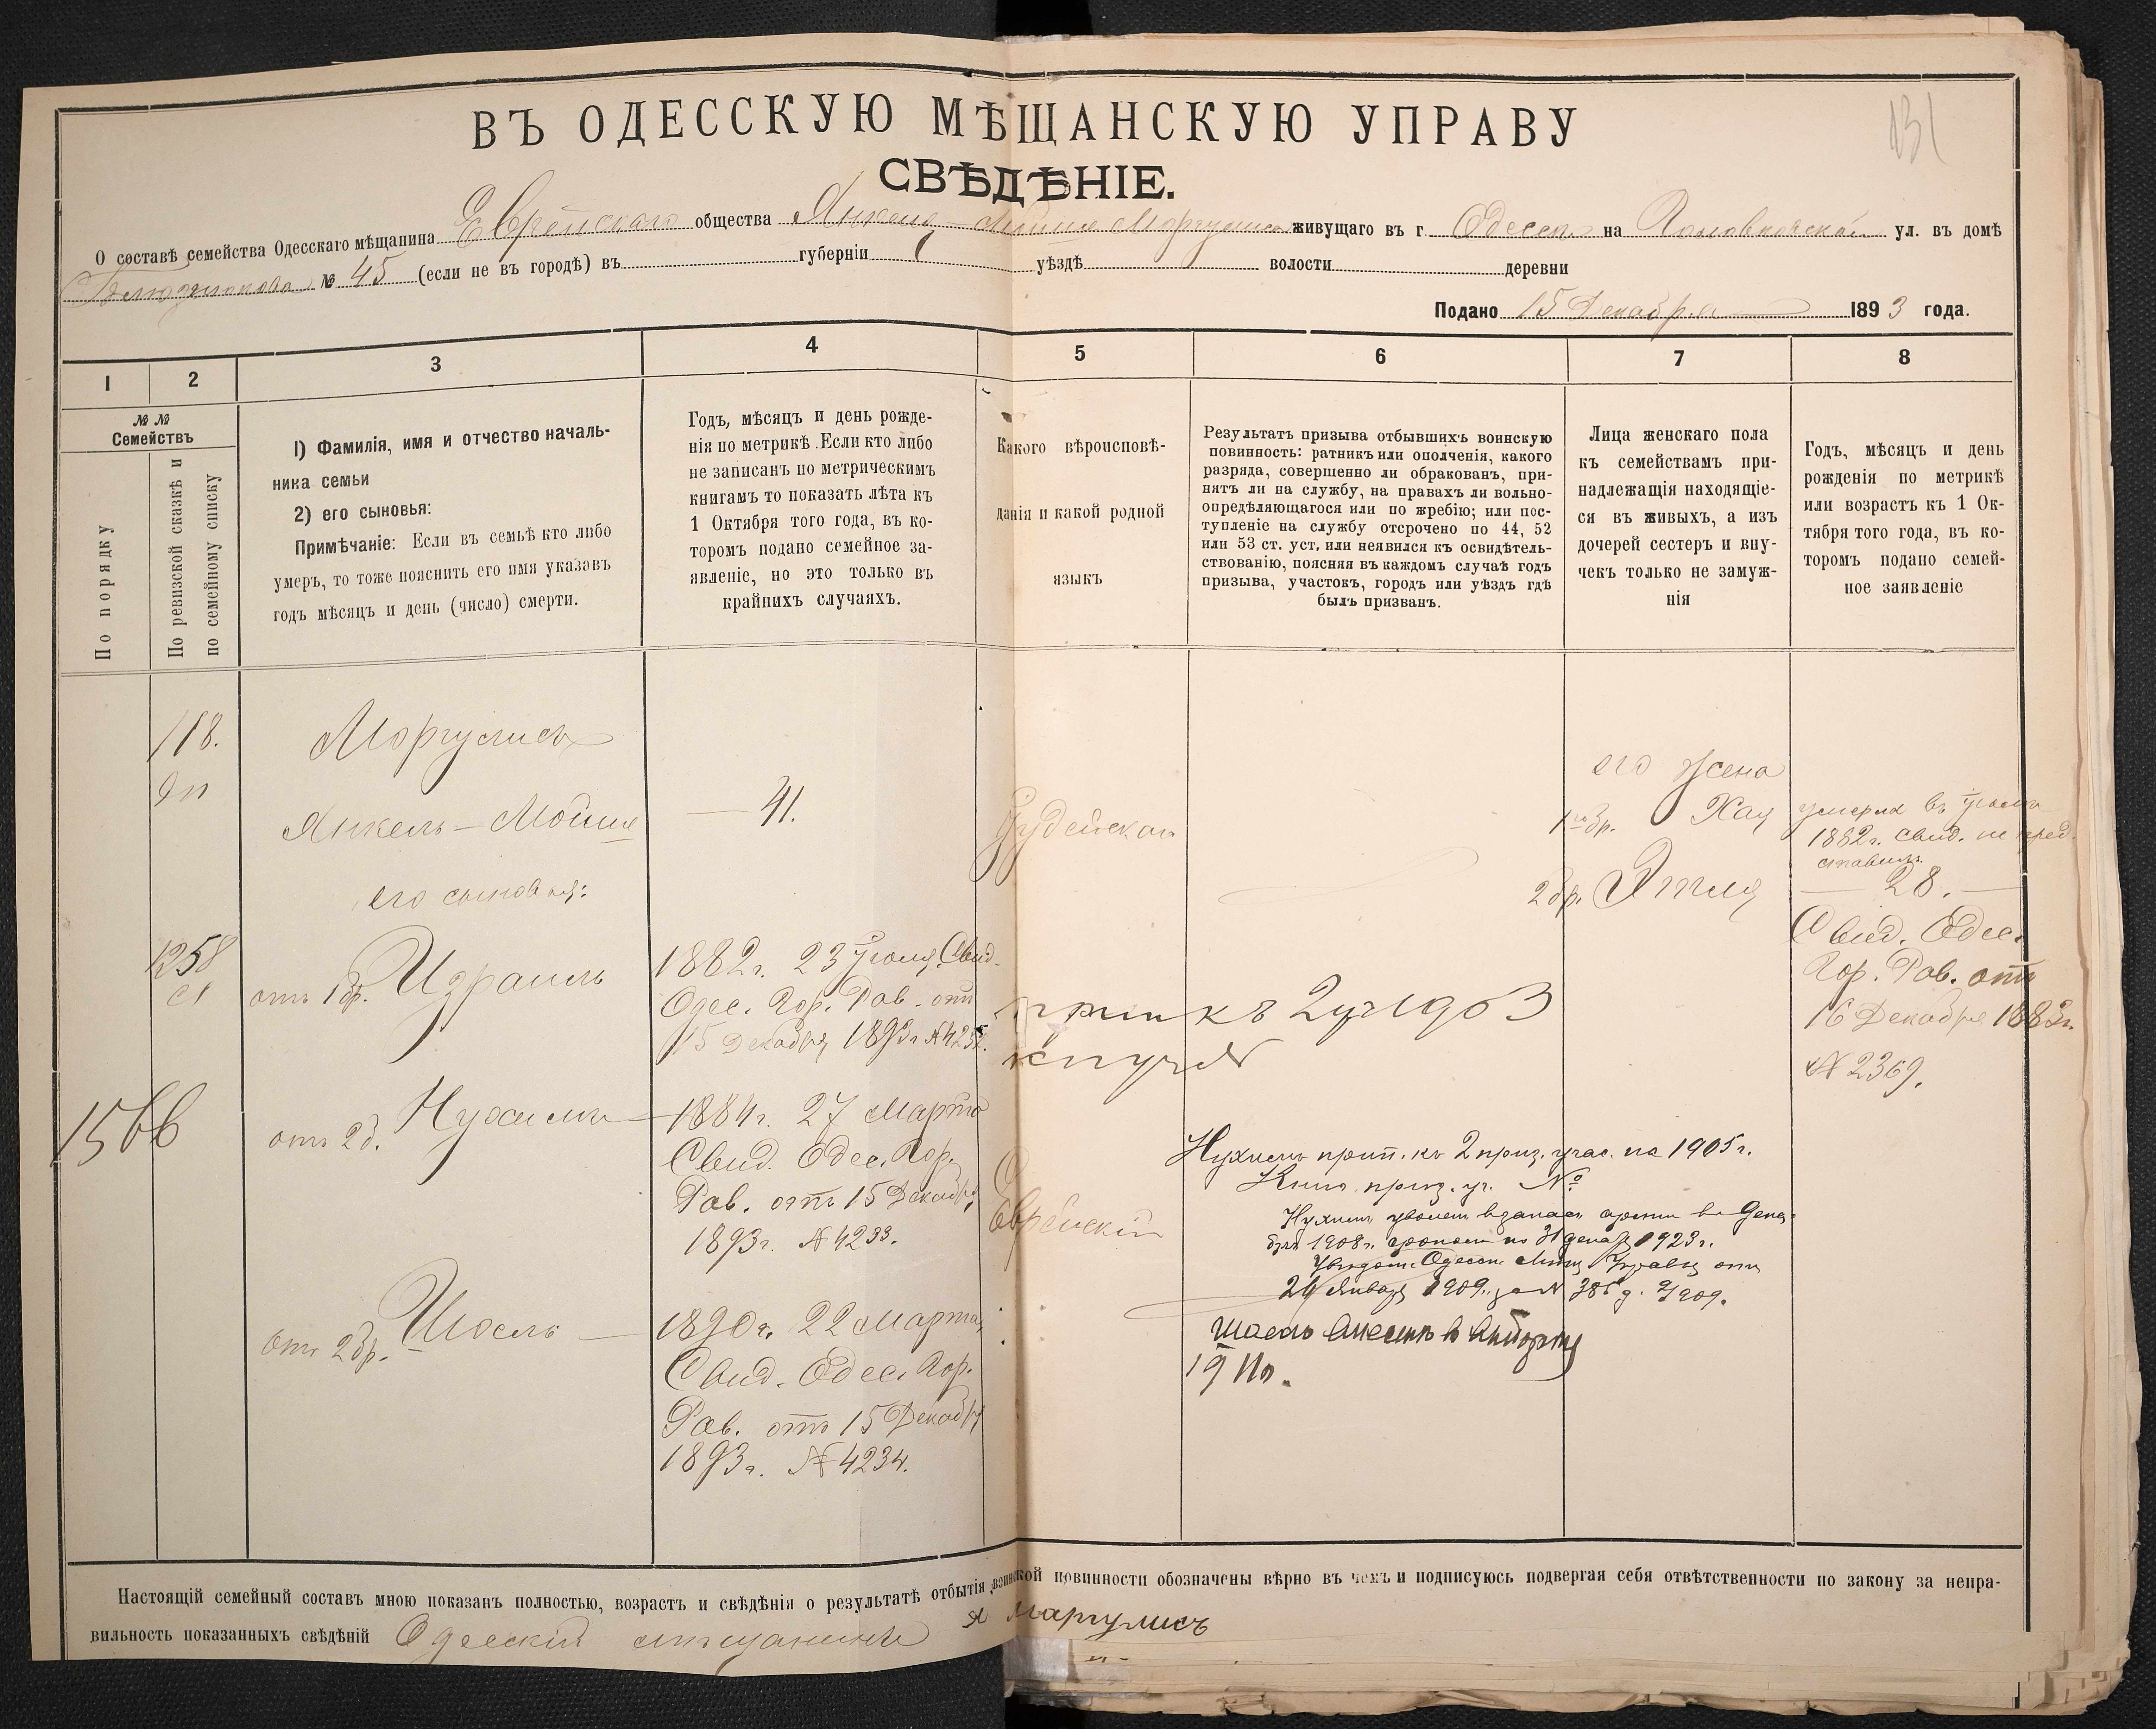 131
ВЪ ОДЕССКУЮ МѢЩАНСКУЮ УПРАВУ
СВѢДѢНІЕ.
О составѣ семейства Одесскаго мѣщанина Еврейскаго общества Янкель-Мойше Моргулиса живущаго въ г. Одессѣ на ул. въ домѣ
№ 45 (если не въ городѣ) въ губерніи уѣздѣ волости деревни
Подано 15 Декабря 1893 года.
1 2 3 4 5 6 7 8
№ № Семействъ
По порядку
По ревизской сказкѣ и по семейному списку
I) Фамилія, имя и отчество началь-
ника семьи
2) его сыновья:
Примѣчаніе: Если въ семьѣ кто либо
умеръ, то тоже пояснить его имя указавъ
годъ мѣсяцъ и день (число) смерти.
Годъ, мѣсяцъ и день рожде-
нія по метрикѣ. Если кто либо
не записанъ по метрическимъ
книгамъ то показать лѣта къ
1 Октября того года, въ ко-
торомъ подано семейное за-
явленіе, но это только въ
крайнихъ случаяхъ.
Какого вѣроисповѣ-
данія и какой родной
языкъ
Результатъ призыва отбывшихъ воинскую
повинность: ратникъ или ополченія, какого
разряда, совершенно ли обракованъ, при-
нятъ ли на службу, на правахъ ли вольно-
опредѣляющагося или по жребію; или пос-
тупленіе на службу отсрочено по 44, 52
или 53 ст. уст. или неявился къ освидѣтель-
ствованію, поясняя въ каждомъ случаѣ годъ
призыва, участокъ, городъ или уѣздъ гдѣ
былъ призванъ.
Лица женскаго пола
къ семействамъ при-
надлежащія находящіе-
ся въ живыхъ, а изъ
дочерей сестеръ и вну-
чекъ только не замуж-
нія
Годъ, мѣсяцъ и день
рожденія по метрикѣ
или возрастъ къ 1 Ок-
тября того года, въ ко-
торомъ подано семей-
ное заявленіе
118.
Моргулисъ
Янкель-Мойше
— 41.
Іудейская
его жена
1го бр. Хая
умерла въ
1882г. свид. не пред-
ставилъ
2 бр. Этля
— 28. —
Свид. Одес.
Гор. Рав. отъ
16 Декабря 1883г.
№ 2369.
его сыновья:
1258
отъ 1 бр. Израиль
1882г. 23 Свид.
Одес. Гор. Рав. отъ
15 Декабря 1893г №
къ 2 уч 1903
1566
отъ 2 б. Нухимъ —
1884г. 27 Марта
Свид. Одес. Гор.
Рав. отъ 15 Декабря
1893г. № 4233.
Еврейскій
Нухимъ прип. къ 2 приз. учас. на 1905г.
приз. уч. №
Нухимъ уволен в запас армии въ Дека-
бре 1908г. по 31 декаб 1923г.
Одесск. Мѣщ Управы отъ
Январ 1909. за №
1909.
отъ 2 бр. Шоель —
1890г. 22 Марта
Свид. Одес. Гор.
Рав. отъ 15 Декабря
1893г. № 4234.
Шоель внесенъ в
19
Настоящій семейный составъ мною показанъ полностью, возрастъ и свѣдѣнія о результатѣ отбытія воинской повинности обозначены вѣрно въ чемъ и подписуюсь подвергая себя отвѣтственности по закону за непра-
вильность показанныхъ свѣдѣній Одесскій мѣщанинъ Я Маргулисъ